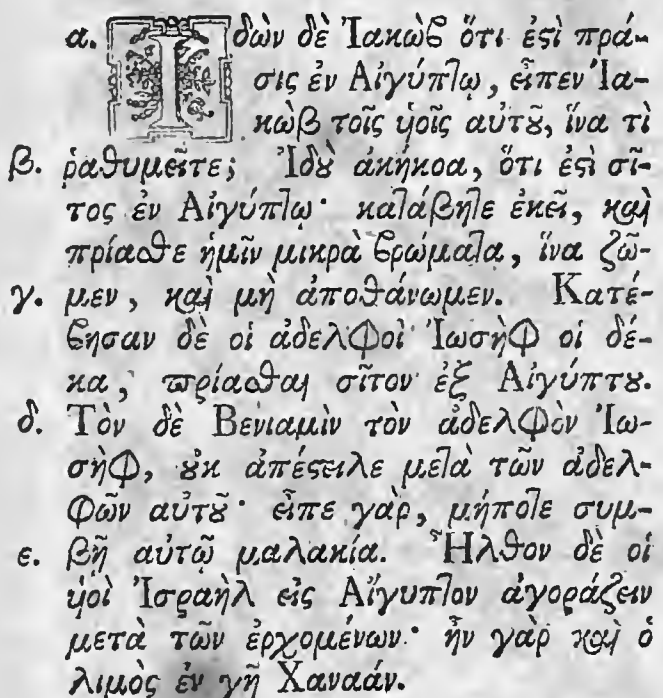 α. Ἰδὼν δὲ Ἰακὼβ ὅτι ἐϛὶ πρά-
σις ἐν Αἰγύπτῳ, εἶπεν Ἰα-
κὼβ τοῖς ὑοῖς αὐτȣ͂, ἵνα τὶ
β. ῥαθυμεῖτε; Ἰδȣ̀ ἀκήκοα, ὅτι ἐϛὶ σῖ-
τος ἐν Αἰγύπτῳ· κατάβητε ἐκεῖ, καὶ
πρίασθε ἡμῖν μικρὰ βρώματα, ἵνα ζῶ-
γ. μεν, καὶ μὴ ἀποθάνωμεν. Κατέ-
βησαν δὲ οἱ ἀδελφοὶ Ἰωσὴφ οἱ δέ-
κα, πρίασθαι σῖτον ἐξ Αἰγύπτȣ.
δ. Τὸν δὲ Βενιαμὶν τὸν ἀδελφὸν Ἰω-
σὴφ, ȣ̓κ ἀπέϛειλε μετὰ τῶν ἀδελ-
φῶν αὐτȣ͂· εἶπε γὰρ, μήποτε συμ-
ε. βῆ αὐτῷ μαλακία. Ἦλθον δὲ οἱ
ὑοὶ Ἰσραὴλ εἰς Αἴγυπτον ἀγοράζειν
μετὰ τῶν ἐρχομένων· ἦν γὰρ καὶ ὁ
λιμὸς ἐν γῆ Χαναάν.